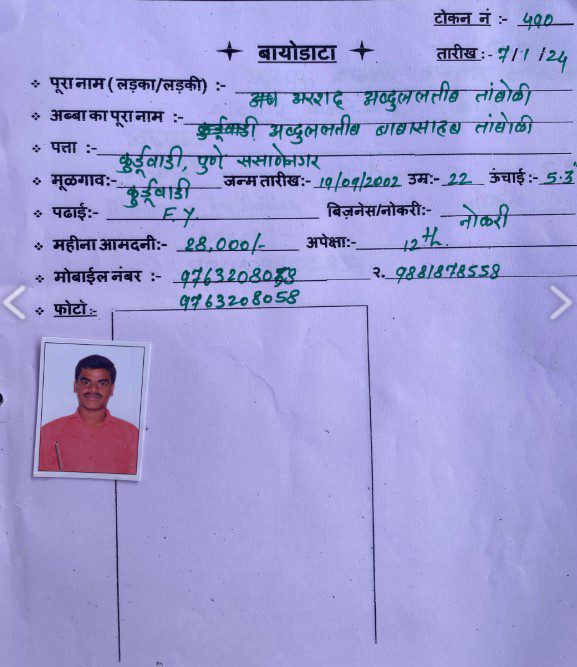 टोकन नं :- 490
बायोडाटा
तारीख :- 7/1/24
पूरा नाम ( लड़का/लड़की) :- अरशद अब्दुललतीब तांबोळी
अब्बा का पूरा नाम :- अब्दुललतीब बाबासाहब तांबोळी
पत्ता :- कुर्डूवाडी, पुणे ससाणेनगर
मूळगाव:- कुर्डूवाडी जन्म तारीख:- 19/09/2002 उम्र:- 22 ऊंचाई :- 5.3"
पढाई:- F.Y. बिज़नेस/नोकरी:- नोकरी
महीना आमदनी:- 28,000/- अपेक्षा:- 12th.
मोबाईल नंबर :- २. 9881878558
9763208058
फोटो :-